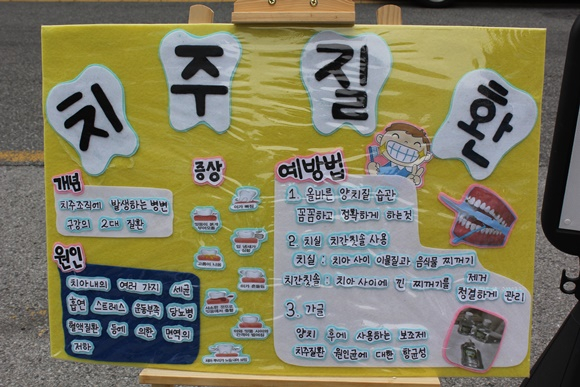 치주질환
개념
치주조직에 발생하는 병변
구강의 2대 질환
원인
치아내의 여러 가지 세균
흡연 스트레스 운동부족 당뇨병
혈액질환 등에 의한 면역의
저하
증상
예방법
1. 올바른 양치질 습관
꼼꼼하고 정확하게 하는것
2. 치실 치간칫솔 사용
치실 : 치아 사이 이물질과 음식물 찌꺼기 제거
치간칫솔 : 치아 사이에 낀 찌꺼기를 청결하게 관리
3. 가글
양치 후에 사용하는 보조제
치주질환 원인균에 대한 항균성